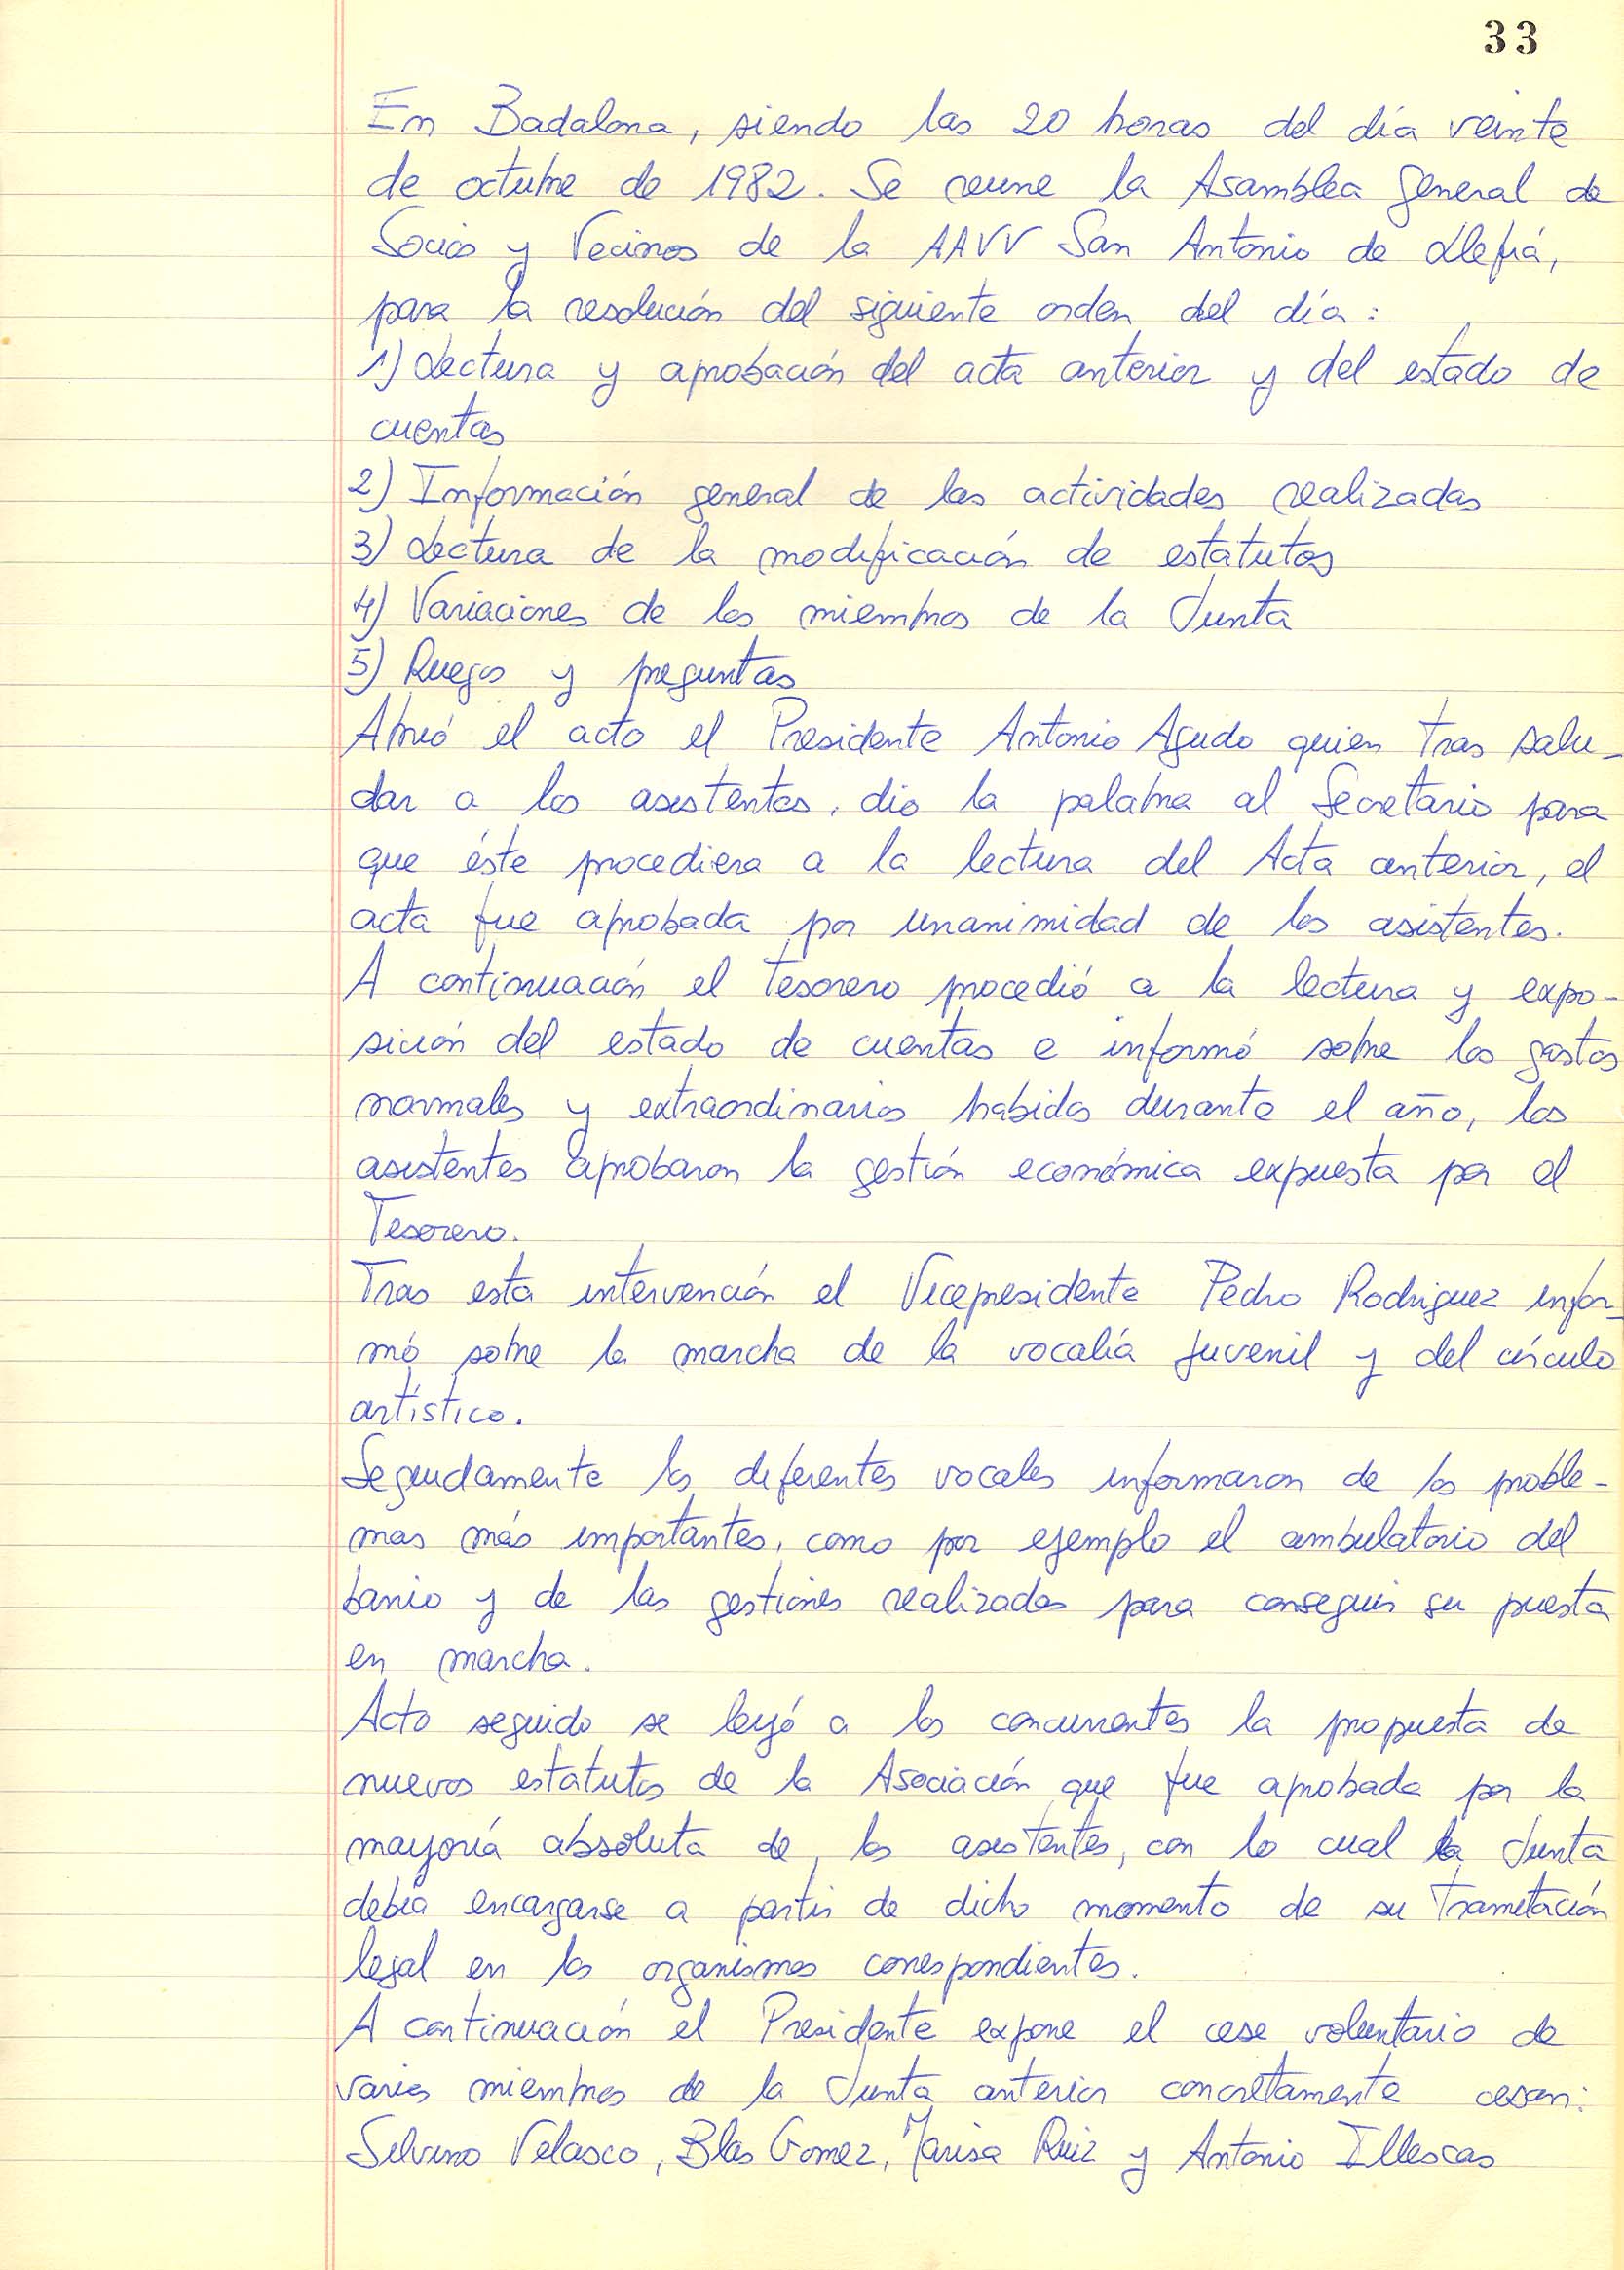 33
En Badalona, siendo las 20 horas del día veinte
de octubre de 1982. Se reune la Asamblea general de
Socios y Vecinos de la AAVV San Antonio de Llefiá,
para la resolución del siguiente orden del día:
1) Lectura y aprobación del acta anterior y del estado de
cuentas
2) Información general de las actividades realizadas
3) Lectura de la modificación de estatutos
4) Variaciones de los miembros de la Junta
5) Ruegos y preguntas
Abrió el acto el Presidente Antonio Agudo quien tras salu-
dar a los asistentes, dio la palabra al Secretario para
que éste procediera a la lectura del Acta anterior, el
acta fue aprobada por unanimidad de los asistentes.
A continuación el Tesorero procedió a la lectura y expo-
sición del estado de cuentas e informó sobre los gastos
normales y extraordinarios habidos durante el año, los
asistentes aprobaron la gestión económica expuesta por el
Tesorero.
Tras esta intervención el Vicepresidente Pedro Rodriguez infor-
mó sobre la marcha de la vocalía juvenil y del círculo
artístico.
Seguidamente los diferentes vocales informaron de los proble-
mas más importantes, como por ejemplo el ambulatorio del
barrio y de las gestiones realizadas para conseguir su puesta
en marcha.
Acto seguido se leyó a los concurrentes la propuesta de
nuevos estatutos de la Asociación que fue aprobada por la
mayoría absoluta de los asistentes, con lo cual la Junta
debía encargarse a partir de dicho momento de su tramitación
legal en los organismos correspondientes.
A continuación el Presidente expone el cese voluntario de
varios miembros de la Junta anterior concretamente cesan:
Silvino Velasco, Blas Gomez, Marisa Ruiz y Antonio Illescas